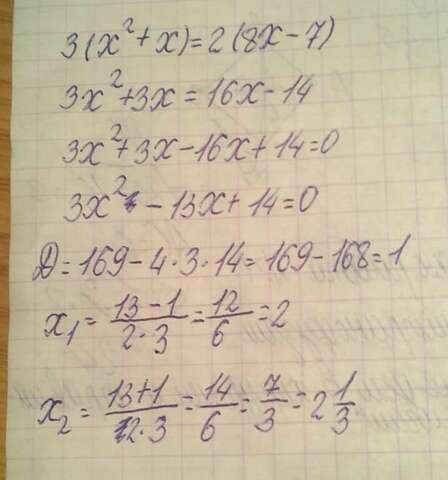 3(x²+x)=2(8x-7)
3x²+3x=16x-14
3x²+3x-16x+14=0
3x²-13x+14=0
D=169-4·3·14=169-168=1
x₁=(13-1)/(2·3)=12/6=2
x₂=(13+1)/(2·3)=14/6=7/3=2 1/3